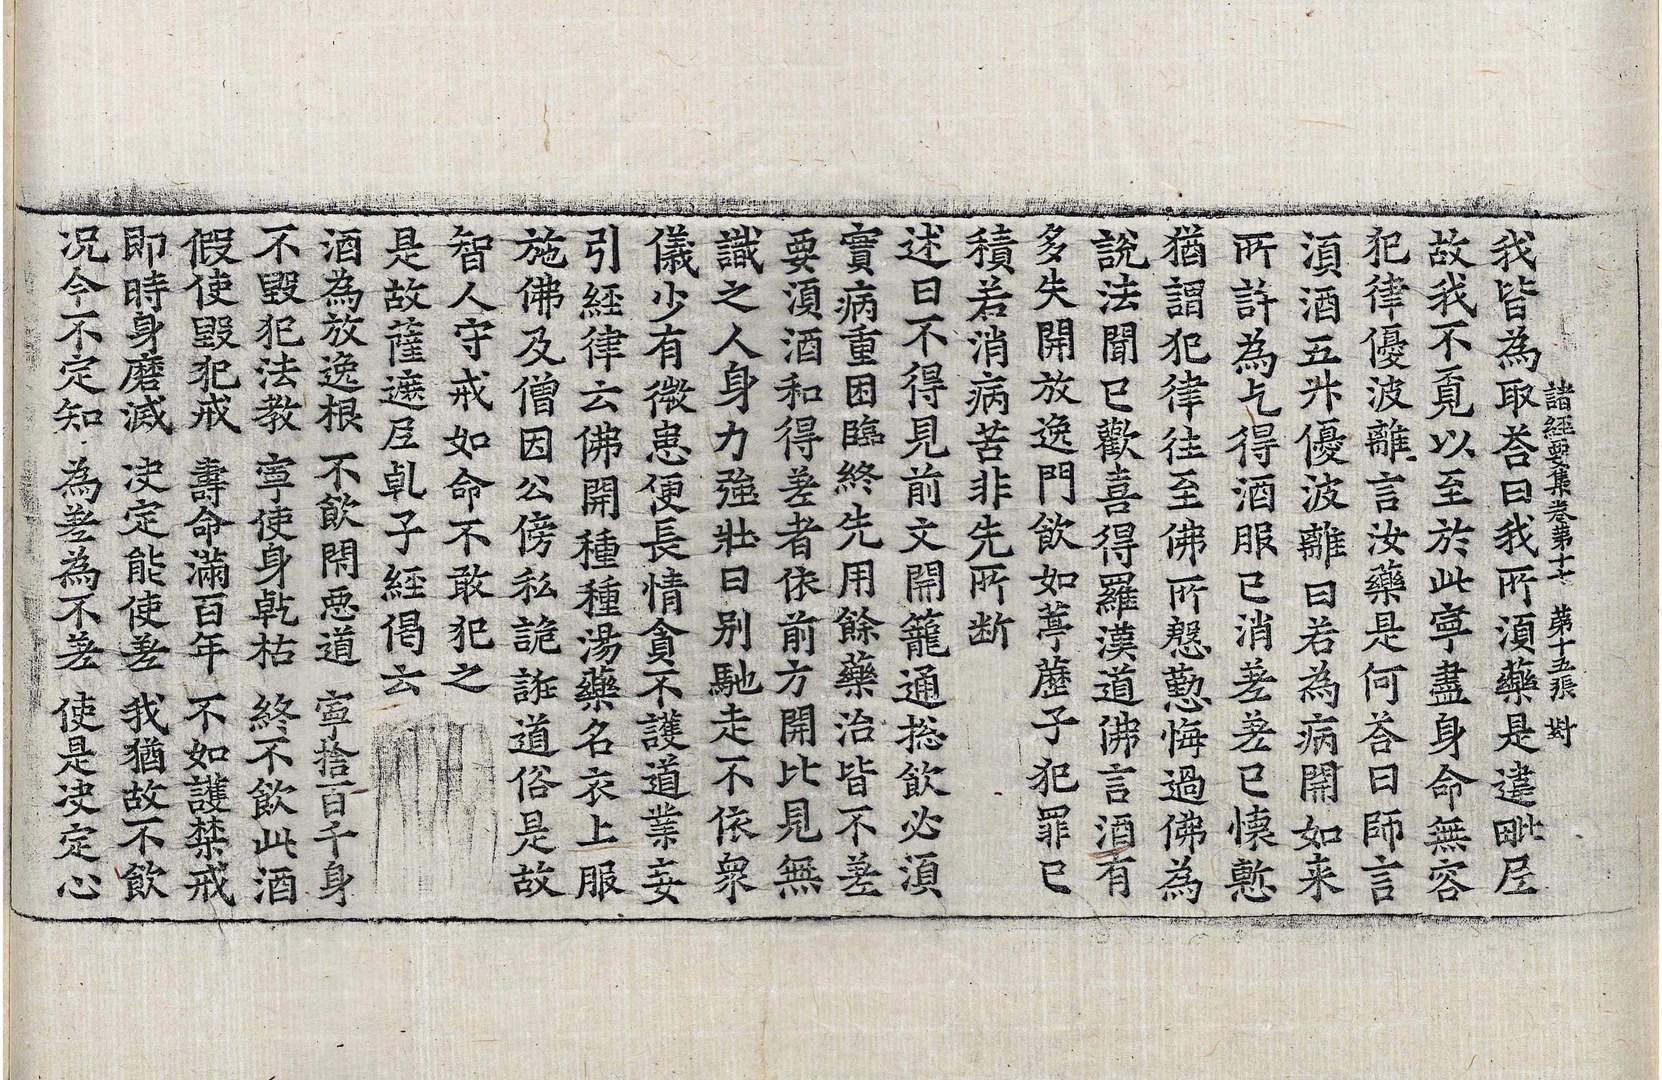 諸經要集卷第十七 第十五張 對
我皆為取荅曰我所湏藥是違毗尼
故我不覓以至於此寧盡身命無容
犯律優波離言汝藥是何荅曰師言
湏酒五升優波離曰若為病開如来
所許為乞得酒服已消差差已懷慙
猶謂犯律往至佛所慇懃悔過佛為
說法聞已歡喜得羅漢道佛言酒有
多失開放逸門飲如葶藶子犯罪已
積若消病苦非先所断
述曰不得見前文開籠通捴飲必湏
實病重困臨終先用餘藥治皆不差
要湏酒和得差者依前方開比見無
識之人身力強壯日別馳走不依衆
儀少有微患便長情貪不護道業妄
引經律云佛開種種湯藥名衣上服
施佛及僧因公傍私詭誑道俗是故
智人守戒如命不敢犯之
是故薩遮尼乹子經偈云
酒為放逸根 不飲閇惡道 寧捨百千身
不毀犯法教 寧使身乹枯 終不飲此酒
假使毀犯戒 壽命滿百年 不如護禁戒
即時身磨滅 决定能使差 我猶故不飲
况今不定知 為差為不差 使是决定心